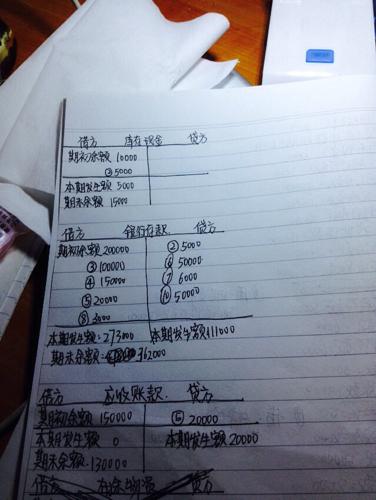 借方 库存现金 贷方
期初余额 10000
② 5000
本期发生额 5000
期末余额 15000
借方 银行存款 贷方
期初余额 200000 ② 5000
③ 100000 ⑥ 50000
④ 150000 ⑦ 6000
⑤ 20000 ⑩ 50000
⑧ 3000
本期发生额:273000 本期发生额111000
期末余额: 362000
借方 应收账款 贷方
期初余额 150000 ⑤ 20000
本期发生额 0 本期发生额 20000
期末余额 130000
借方 贷方